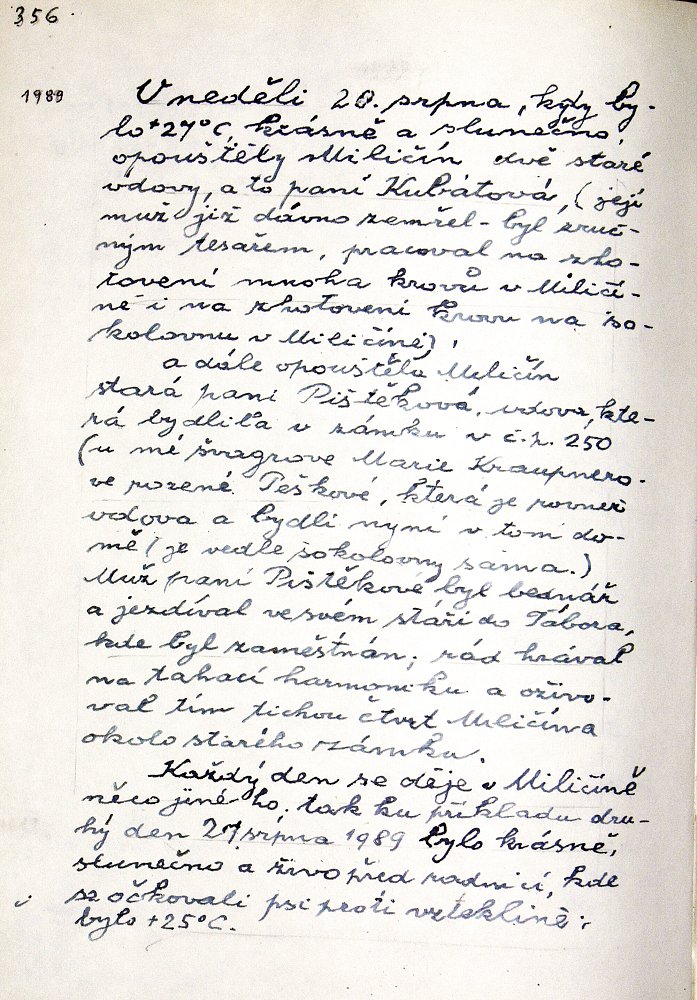 356
1989
V neděli 20. srpna, kdy by-
lo +27°C, krásně a slunečno,
opouštěly Miličín dvě staré
vdovy, a to paní Kubátová, (její
muž již dávno zemřel - byl zruč-
ným tesařem, pracoval na zho-
tovení mnoha krovů v Miličí-
ně i na zhotovení krovu na so-
kolovnu v Miličíně),
a dále opouštěla Miličín
stará paní Pištěková, vdova, kte-
rá bydlila v zámku v č.p. 250
(u mé švagrove Marie Kraupnero-
ve rozené Peškové, která je rovněž
vdova a bydlí nyní v tom do-
mě (je vedle sokolovny sama.)
Muž paní Pištěkové byl bednář
a jezdíval ve svém stáří do Tábora,
kde byl zaměstnán; rád hrával
na tahací harmoniku a oživo-
val tím tichou čtvrt Miličína
okolo starého zámku.
Každý den se děje v Miličíně
něco jiného, tak ku příkladu dru-
hý den 21. srpna 1989 bylo krásně,
slunečno a živo před radnicí, kde
se očkovali psi proti vzteklině;
bylo +25°C.